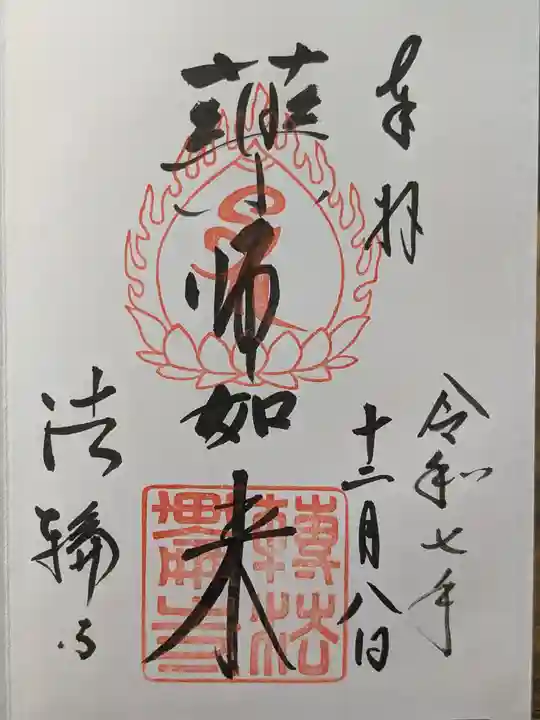 奉拝
令和七年
十二月八日
薬師如来
法輪寺